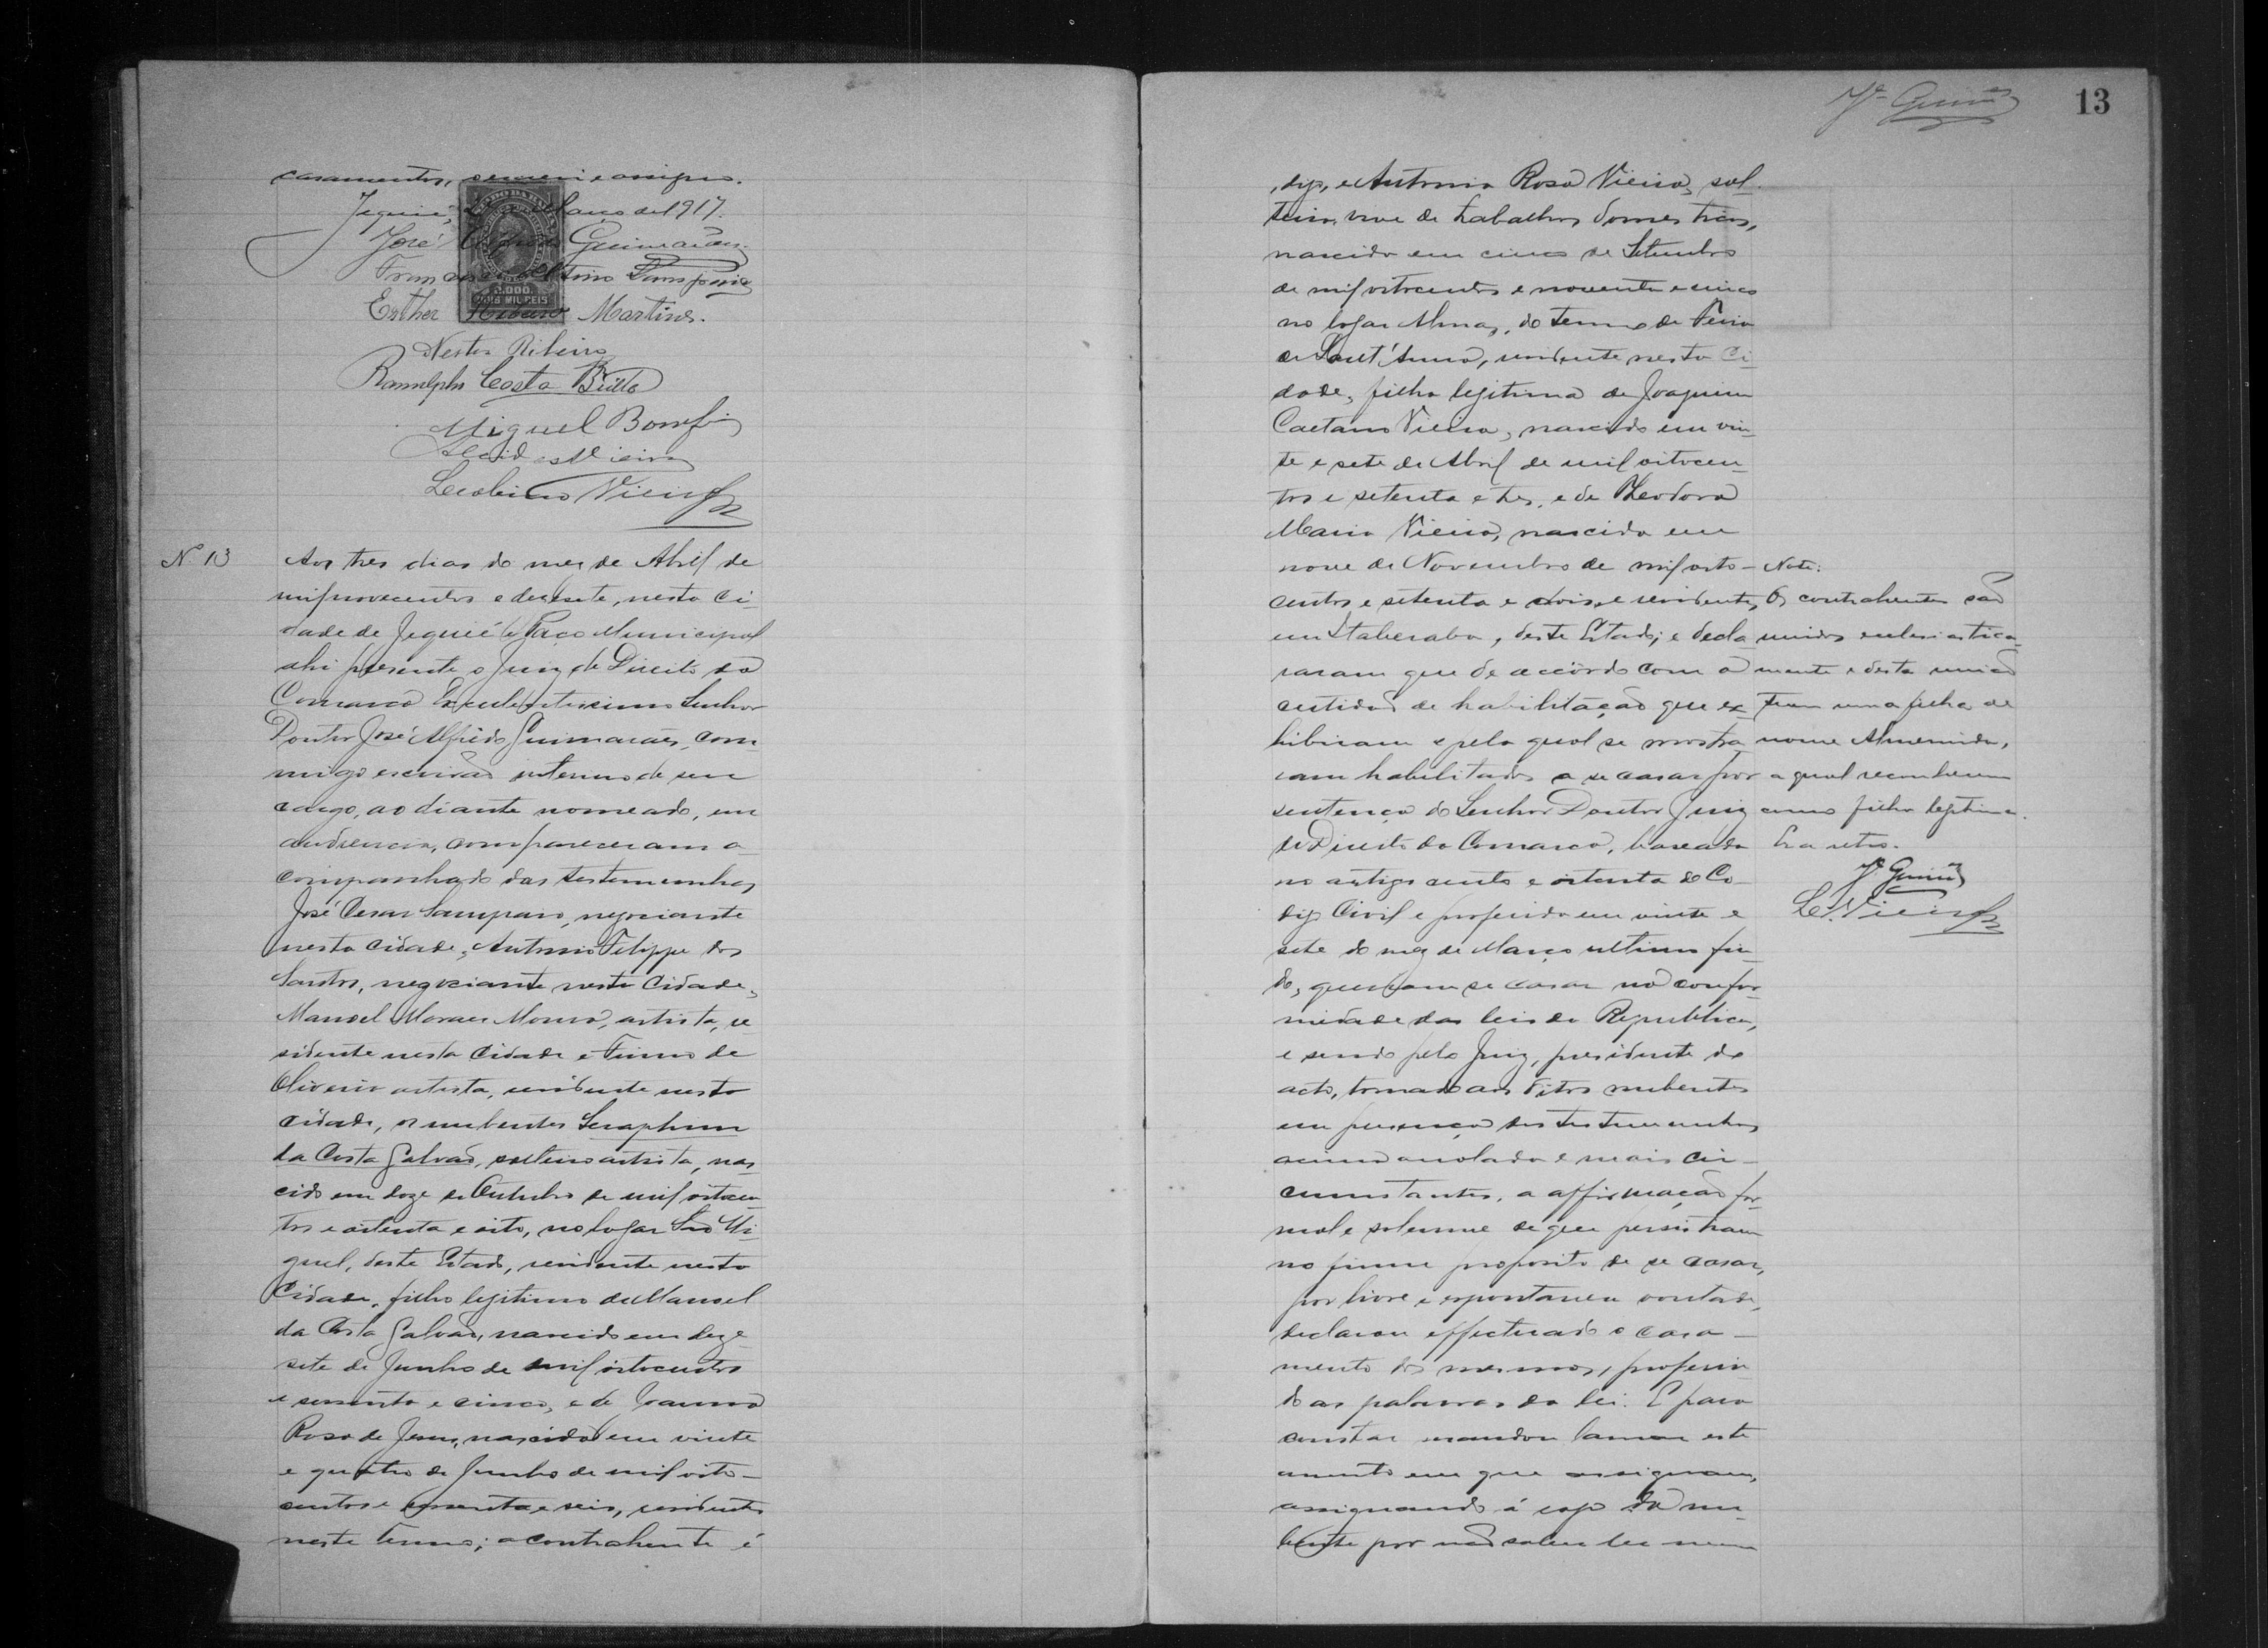 casamentos, escrevi e assigno.
Jequié, de Março de 1917.
José Alfredo Guimarães.
Francisco Altino Sampaio
2.000
DOIS MIL REIS
Esther Ribeiro Martins.
Nestor Ribeiro
Ranulpho Costa Britto
Miguel Bomfim
Alcides Vieira
Vieira
N. 13
Aos tres dias do mez de Abril de
mil novecentos e dezesete, nesta Ci-
dade de Jequié e Paço Municipal
ahi presente o Juiz de Direito da
Comarca Excellentissimo Senhor
Doutor José Alfredo Guimarães, com-
migo escrivão interino de seu
cargo, ao diante nomeado, em
audiencia, compareceram a-
companhado das testemunhas
José Cesar Sampaio, negociante
nesta cidade, Antonio Felippe dos
Santos, negociante nesta Cidade,
Manoel Moraes Moura, artista, re
sidente nesta Cidade e Firmo de
Oliveira artista, residente nesta
cidade, os nubentes Seraphim
da Costa Galvão, solteiro artista, nas
cido em doze de Outubro de mil oitocen
tos e oitenta e oito, no logar São Mi-
guel, deste Estado, residente nesta
Cidade, filho legitimo de Manoel
da Costa Galvão, nascido em deze-
sete de Junho de mil oitocentos
e sessenta e cinco, e de Joanna
Rosa de Jesus, nascida em vinte
e quatro de Junho de mil oito-
centos e sessenta e seis, residentes
neste termo; a contrahente é
Jé Guims
13
, digo, e Antonia Rosa Vieira, sol-
teira, vive de trabalhos domesticos,
nascida em cinco de Setembro
de mil oitocentos e noventa e cinco
no logar Almas, do termo de Feira
de Sant'Anna, residente nesta Ci-
dade, filha legitima de Joaquim
Caetano Vieira, nascido em vin-
te e sete de Abril de mil oitocen-
tos e setenta e tres, e de Theodora
Maria Vieira, nascida em
nove de Novembro de mil oito-
centos e setenta e dois, e residentes
em Itaberaba, deste Estado; e decla
raram que de accôrdo com a
certidão de habilitação que ex-
hibiram e pela qual se mostra
ram habilitados a se casar por
sentença do Senhor Doutor Juiz
de Direito da Comarca, baseada
no artigo cento e oitenta do Co-
digo Civil e proferida em vinte e
sete do mez de Março ultimo fin-
do, queriam se casar na confor-
midade das leis da Republica,
e sendo pelo Juiz, presidente do
acto, tomado aos ditos nubentes
em presença das testemunhas
acima arrolada e mais cir-
cumstantes, a affirmação for-
mal e solemne de que persistiam
no firme proposito de se casar,
por livre e espontanea vontade,
declarou effectuado o casa-
mento dos mesmos, proferin-
do as palavras da lei. E para
constar mandou lavrar este
assento em que assignam,
assignando á rogo da nu-
bente por não saber ler nem
Nota:
Os contrahentes são
unidos ecclesiastica-
mente e desta união
tem uma filha de
nome Almerinda,
a qual reconhecem
como filha legitima.
Era retro.
Jé Guims
L. Vieira